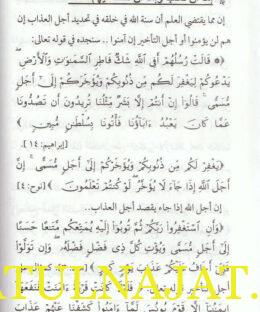 إن مما يقتضي العلم أن سنة الله في خلقه في تحديد أجل العذاب إن
هم لن يؤمنوا أو أجل التأخير إن آمنوا .. سنجده في قوله تعالى:
﴿ قَالَتْ رُسُلُهُمْ أَفِي اللَّهِ شَكٌّ فَاطِرِ السَّمَوَتِ وَالْأَرْضِ
يَدْعُوكُمْ لِيَغْفِرَ لَكُم مِّن ذُنُوبِكُمْ وَيُؤَخِّرَكُمْ إِلَى أَجَلٍ
مُّسَمًّى قَالُوا إِنْ أَنتُمْ إِلَّا بَشَرٌ مِّثْلُنَا تُرِيدُونَ أَن تَصُدُّونَا
عَمَّا كَانَ يَعْبُدُ ءَابَاؤُنَا فَأْتُونَا بِسُلْطَنٍ مُّبِينٍ ﴾
[إبراهيم: ١٤].
﴿يَغْفِرْ لَكُم مِّن ذُنُوبِكُمْ وَيُؤَخِّرْكُمْ إِلَى أَجَلٍ مُّسَمًّى إِنَّ
أَجَلَ اللَّهِ إِذَا جَاءَ لَا يُؤَخَّرُ لَوْ كُنتُمْ تَعْلَمُونَ ﴾ [نوح: ٤]
إن أجل الله إذا جاء يقصد أجل العذاب..
﴿وَأَنِ اسْتَغْفِرُوا رَبَّكُمْ ثُمَّ تُوبُوا إِلَيْهِ يُمَتِّعْكُم مَّتَعًا حَسَنًا
إِلَى أَجَلٍ مُّسَمًّى وَيُؤْتِ كُلَّ ذِي فَضْلٍ فَضْلَهُ وَإِن تَوَلَّوْا
عَذَابَ يَوْمٍ
ATUL NAJAT.
إِيمَنُهَا إِلَّا قَوْمَ يُونُسَ لَمَّا ءَامَنُوا كَشَفْنَا عَنْهُمْ عَذَابَ